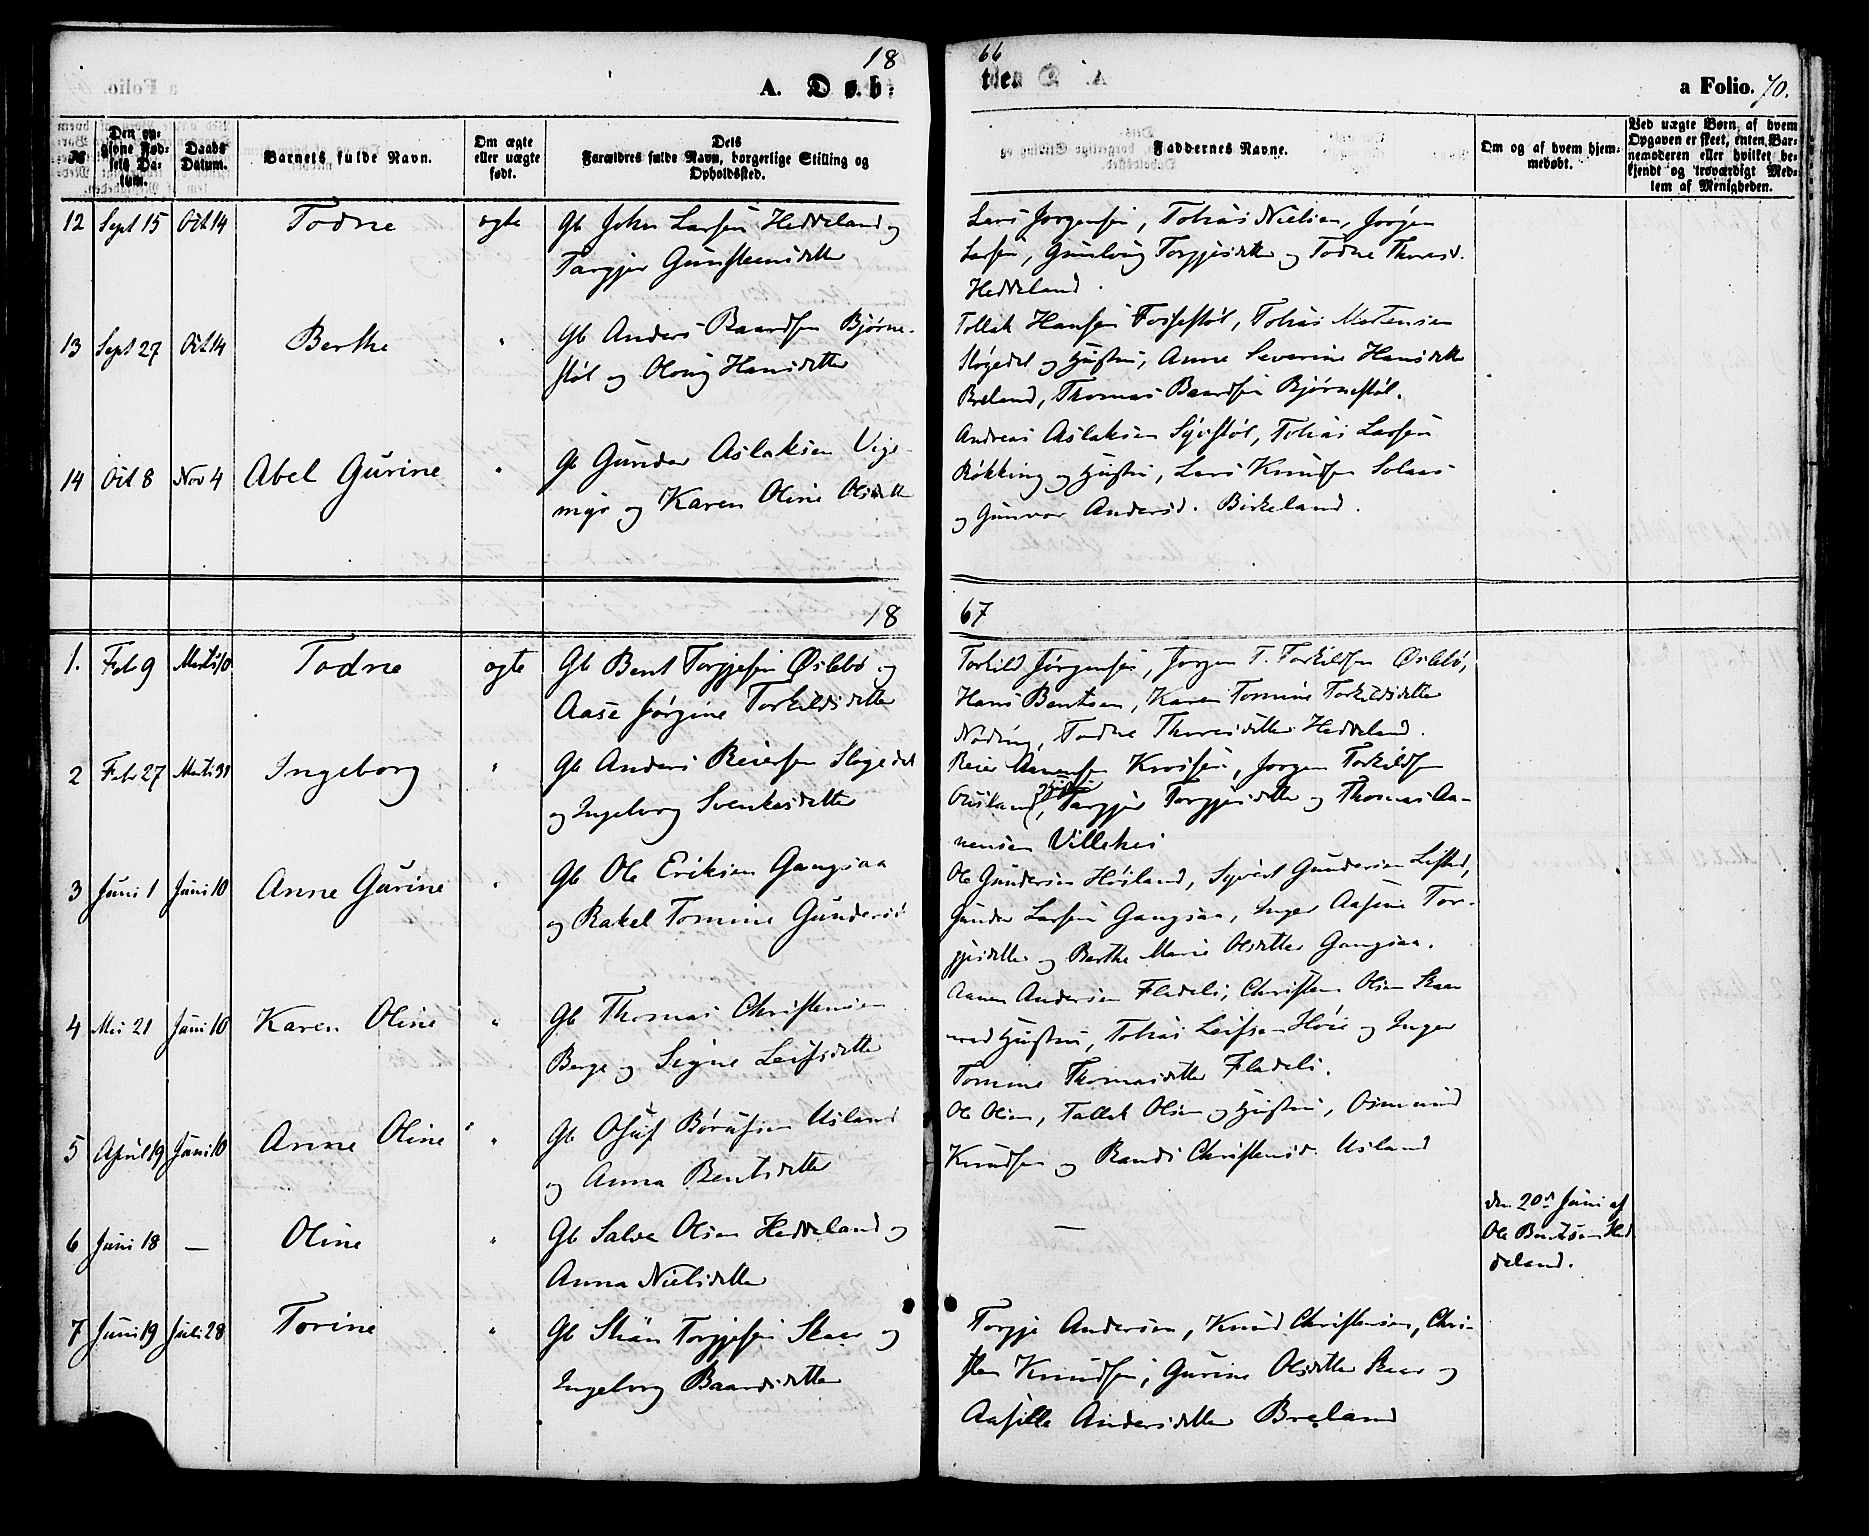 18
66
A. Døb-
te.
a Folio. 70.
№
Den opgivne Fødsels Datum.
Daabs Datum.
Barnets fulde Navn.
Om ægte eller uægte født.
Dets Forældres fulde Navn, borgerlige Stilling og Opholdssted.
Faddernes Navne.
Om og af hvem hjemmedøbt.
Ved uægte Børn, af hvem Opgaven er skeet, enten Barnemoderen eller hvilket bekjendt og troværdigt Medlem af Menigheden.
12 Sept 15 Oct 14 Todne ægte Gb John Larsen Heddeland og
Targjer Gunsteensdatter
Lars Jørgensen, Tobias Nielsen, Jørgen
Larsen, Gunborg Torgjesdatter og Todne Thoresd.
Heddeland.
13 Sept 27 Oct 14 Berthe " Gb Anders Baardsen Bjørne-
støl og Oloug Hansdatter
Tollak Hansen Fossestøl, Tobias Mortensen
Støgedal og Hustru, Anne Severine Hansdatter
Breland, Thomas Baardsen Bjørnestøl.
14 Oct 8 Nov 4 Abel Gurine " Gb Gunder Aslaksen Vige-
myr og Karen Oline Olsdatter
Andreas Aslaksen, Tobias Larsen
Røkking og Hustru, Lars Knudsen Solaas
og Gunvor Andersd. Birkeland.
18
67
1. Feb 9 Marts 10 Todne ægte Gb Bent Torgjesen Øslebø og
Aase Jørgine Torkildsdatter
Torkild Jørgensen, Jørgen T. Torkildsen Øslebø,
Hans Bentsen, Karen Tomine Torkildsdatter
Nøding, Todne Thoresdatter Heddeland.
2 Febr 27 Marts 31 Ingeborg " Gb Anders Reiersen Støgedal
og Ingeborg Svenkesdatter
Reier Aanensen Krossen, Jørgen Torkildsen
Hustru, Targjer Torgjesdatter og Thomas Aa-
nensen Villehei
3 Juni 1 Juni 10 Anne Gurine " Gb Ole Eriksen Gangsaa
og Rakel Tomine Gundersd
Ole Gundersen Høiland, Syvert Gundersen Lefsted,
Gunder Larsen Gangsaa, Inger Aasine Tor-
gjesdatter og Berthe Marie Olsdatter Gangsaa.
4 Mai 21 Juni 10 Karen Oline " Gb Thomas Christensen
Berge og Signe Leifsdatter
Aanen Andersen Fladeli, Christen Olsen Skaar
med Hustru, Tobias Leifsen Høie og Inger
Tomine Thomasdatter Fladeli.
5 April 19 Juni 10 Anne Oline " Gb Osuf Børusen Usland
og Anna Bentsdatter
Ole Olsen, Tallak Olsen og Hustru, Osmund
Knudsen og Randi Christensd. Usland
6 Juni 18 — Oline " Gb Salve Olsen Heddeland og
Anna Nielsdatter
—
den 20de Juni af
Ole Bentsen Hed
deland.
7 Juni 19 Juli 28 Torine " Gb Stian Torgjesen Skaar og
Ingeborg Baardsdatter
Torgje Andersen, Knud Christensen, Chri-
sten Knudsen, Gurine Olsdatter Skaar og
Aasille Andersdatter Breland